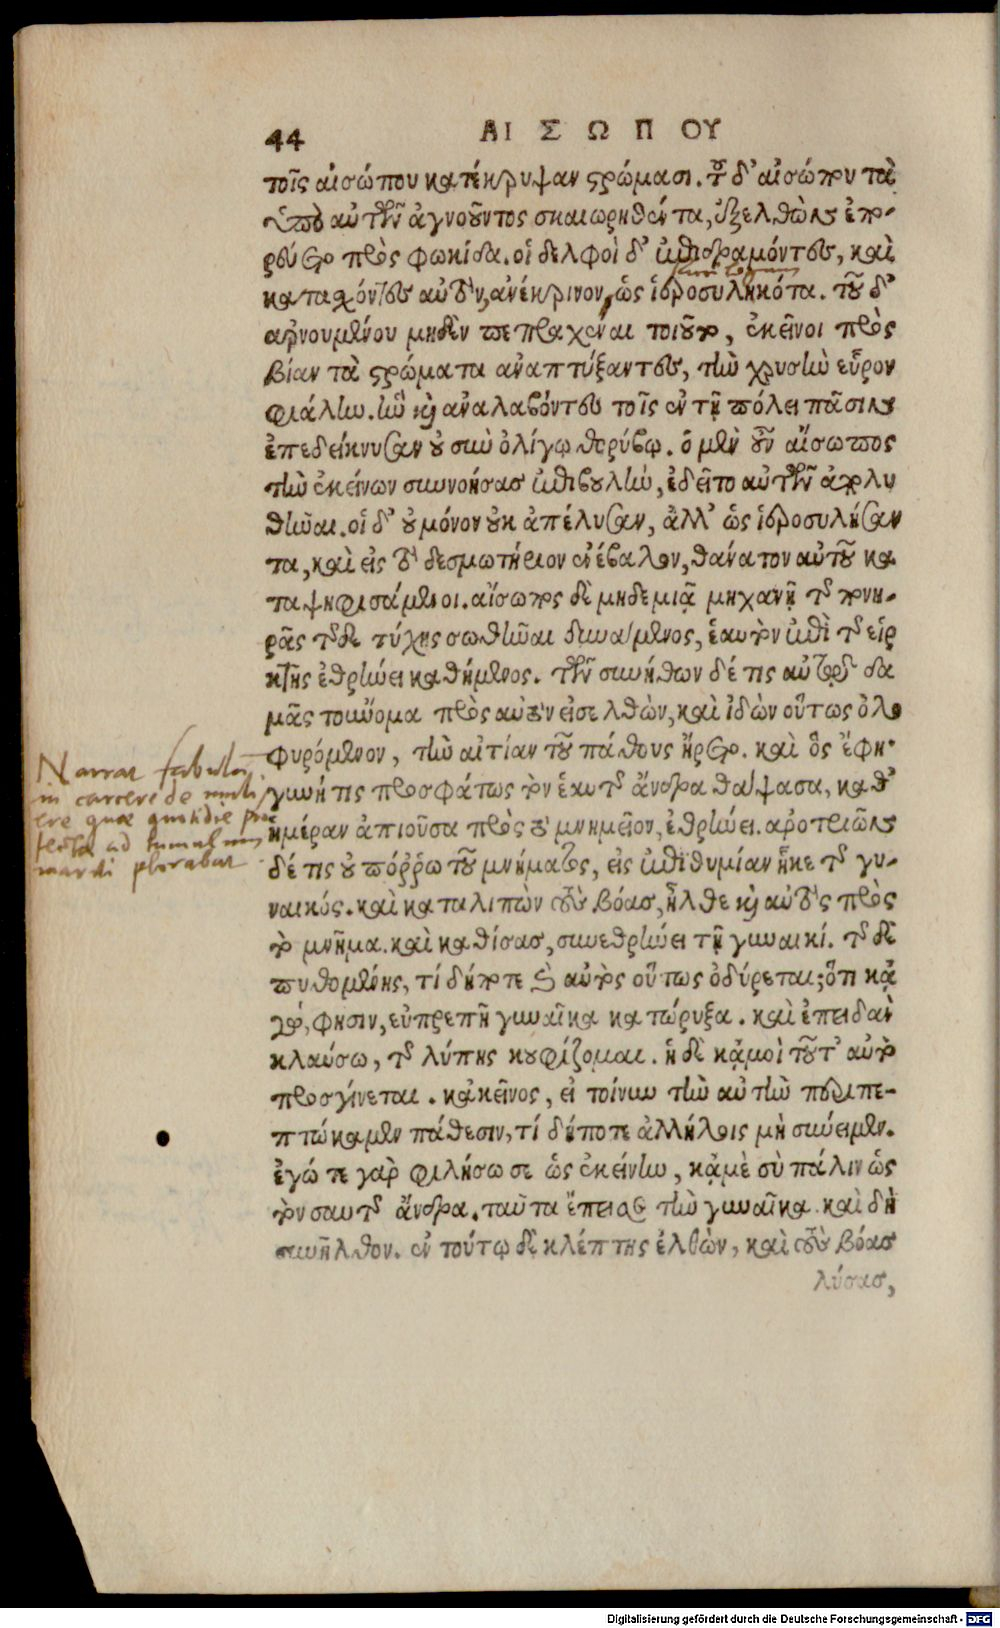 44 ΑΙ Σ Ω Π ΟΥ
τοῖς αἰσώπου κατέκρυψαν στρώμασι. τοῦ δ' αἰσώπου τὰ
ὑπὸ αὐτῶν ἀγνοοῦντος σκαιωρηθέντα, ἐξελθὼν ἐπο-
ρεύετο πρὸς φωκίδα. οἱ δελφοὶ δ' ἐπιδραμόντες, καὶ
κατασχόντες αὐτὸν, ἀνέκρινον, ὡς ἱεροσυληκότα. τοῦ δ'
ἀρνουμένου μηδὲν πεπραχέναι τοιοῦτο, ἐκεῖνοι πρὸς
βίαν τὰ στρώματα ἀναπτύξαντες, τὴν χρυσῆν εὗρον
φιάλην. ἣν καὶ ἀναλαβόντες τοῖς ἐν τῇ πόλει πᾶσιν
ἐπεδείκνυσαν οὐ σὺν ὀλίγῳ θορύβῳ. ὁ μὲν οὖν αἴσωπος
τὴν ἐκείνων συννοήσας ἐπιβουλὴν, ἐδεῖτο αὐτῶν ἀπολυ
θῆναι. οἱ δ' οὐ μόνον οὐκ ἀπέλυσαν, ἀλλ' ὡς ἱεροσυλήσαν
τα, καὶ εἰς τὸ δεσμωτήριον ἐνέβαλον, θάνατον αὐτοῦ κα
ταψηφισάμενοι. αἴσωπος δὲ μηδεμιᾷ μηχανῇ τῆς πονη-
ρᾶς τῆσδε τύχης σωθῆναι δυνάμενος, ἑαυτὸν ἐπὶ τῆς εἱρ
κτῆς ἐθρήνει καθήμενος. τῶν συνήθων δέ τις αὐτοῦ δα
μᾶς τοὔνομα πρὸς αὐτὸν εἰσελθὼν, καὶ ἰδὼν οὕτως ὀλο
φυρόμενον, τὴν αἰτίαν τοῦ πάθους ἤρετο. καὶ ὃς ἔφη·
γυνή τις προσφάτως τὸν ἑαυτῆς ἄνδρα θάψασα, καθ'
ἡμέραν ἀπιοῦσα πρὸς τὸ μνημεῖον, ἐθρήνει. ἀροτριῶν
δέ τις οὐ πόῤῥω τοῦ μνήματος, εἰς ἐπιθυμίαν ἧκε τῆς γυ-
ναικός. καὶ καταλιπὼν τοὺς βόας, ἦλθε καὶ αὐτὸς πρὸς
τὸ μνῆμα. καὶ καθίσας, συνεθρήνει τῇ γυναικί. τῆς δὲ
πυθομένης, τί δήποτε καὶ αὐτὸς οὕτως ὀδύρεται; ὅτι κἀ
γὼ, φησιν, εὐπρεπῆ γυναῖκα κατώρυξα. καὶ ἐπειδὰν
κλαύσω, τῆς λύπης κουφίζομαι. ἡ δὲ κἀμοὶ τοῦτ' αὐτὸ
προσγίνεται. κἀκεῖνος, εἰ τοίνυν τὴν αὐτὴν περιπε-
πτώκαμεν πάθεσιν, τί δήποτε ἀλλήλοις μὴ σύνειμεν.
ἐγώ τε γὰρ φιλήσω σε ὡς ἐκείνην, κἀμὲ σὺ πάλιν ὡς
τὸν σαυτῆς ἄνδρα. ταῦτα ἔπεισε τὴν γυναῖκα. καὶ δὴ
συνῆλθον. ἐν τούτῳ δὲ κλέπτης ἐλθὼν, καὶ τοὺς βόας
λύσας,
Narrat fabulam
in carcere de muli
ere quae quotidie pro
fecta ad tumulum
mariti plorabat
Digitalisierung gefördert durch die Deutsche Forschungsgemeinschaft - DFG